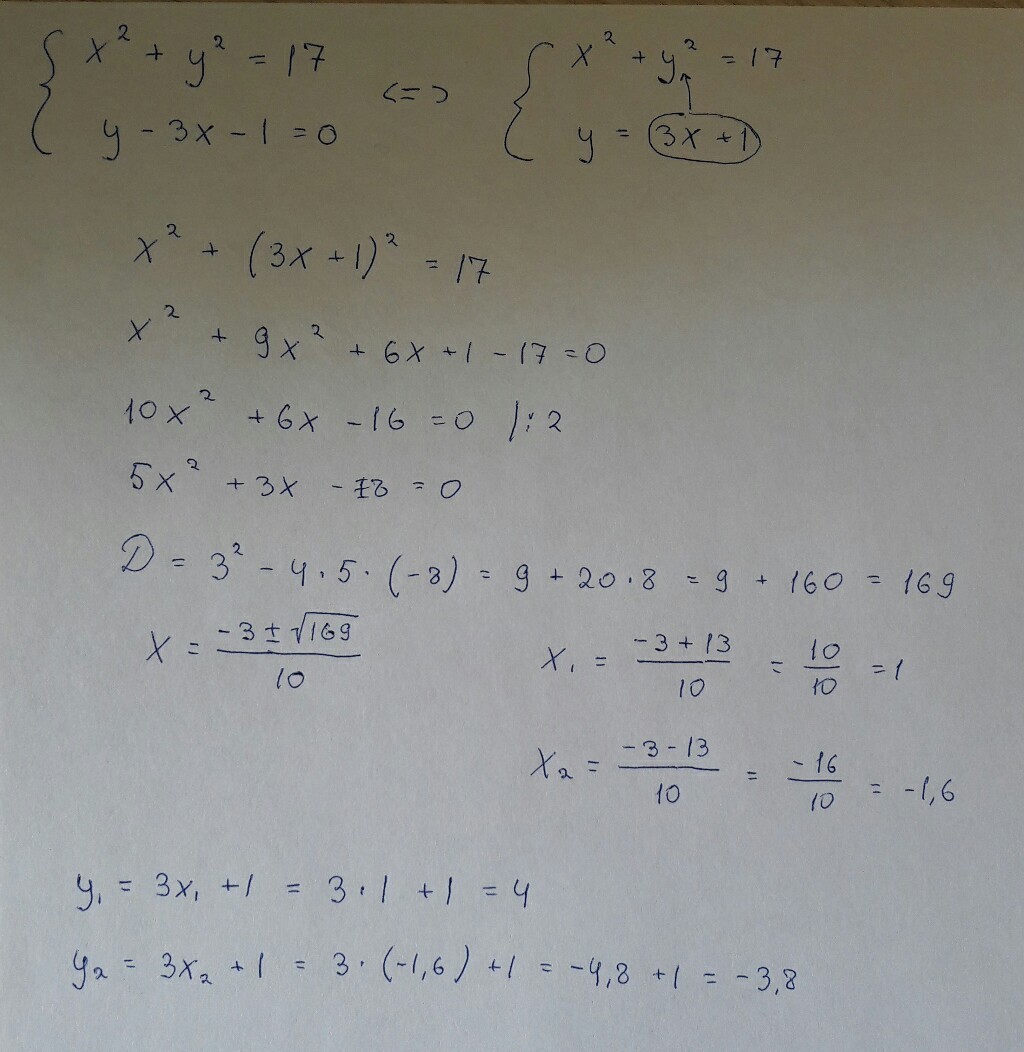 { x² + y² = 17 <=> { x² + y² = 17
y - 3x - 1 = 0 y = 3x + 1
x² + (3x + 1)² = 17
x² + 9x² + 6x + 1 - 17 = 0
10x² + 6x - 16 = 0 |: 2
5x² + 3x - 8 = 0
D = 3² - 4 · 5 · (-8) = 9 + 20 · 8 = 9 + 160 = 169
x = (-3 ± √169)/10 x₁ = (-3 + 13)/10 = 10/10 = 1
x₂ = (-3 - 13)/10 = -16/10 = -1,6
y₁ = 3x₁ + 1 = 3 · 1 + 1 = 4
y₂ = 3x₂ + 1 = 3 · (-1,6) + 1 = -4,8 + 1 = -3,8